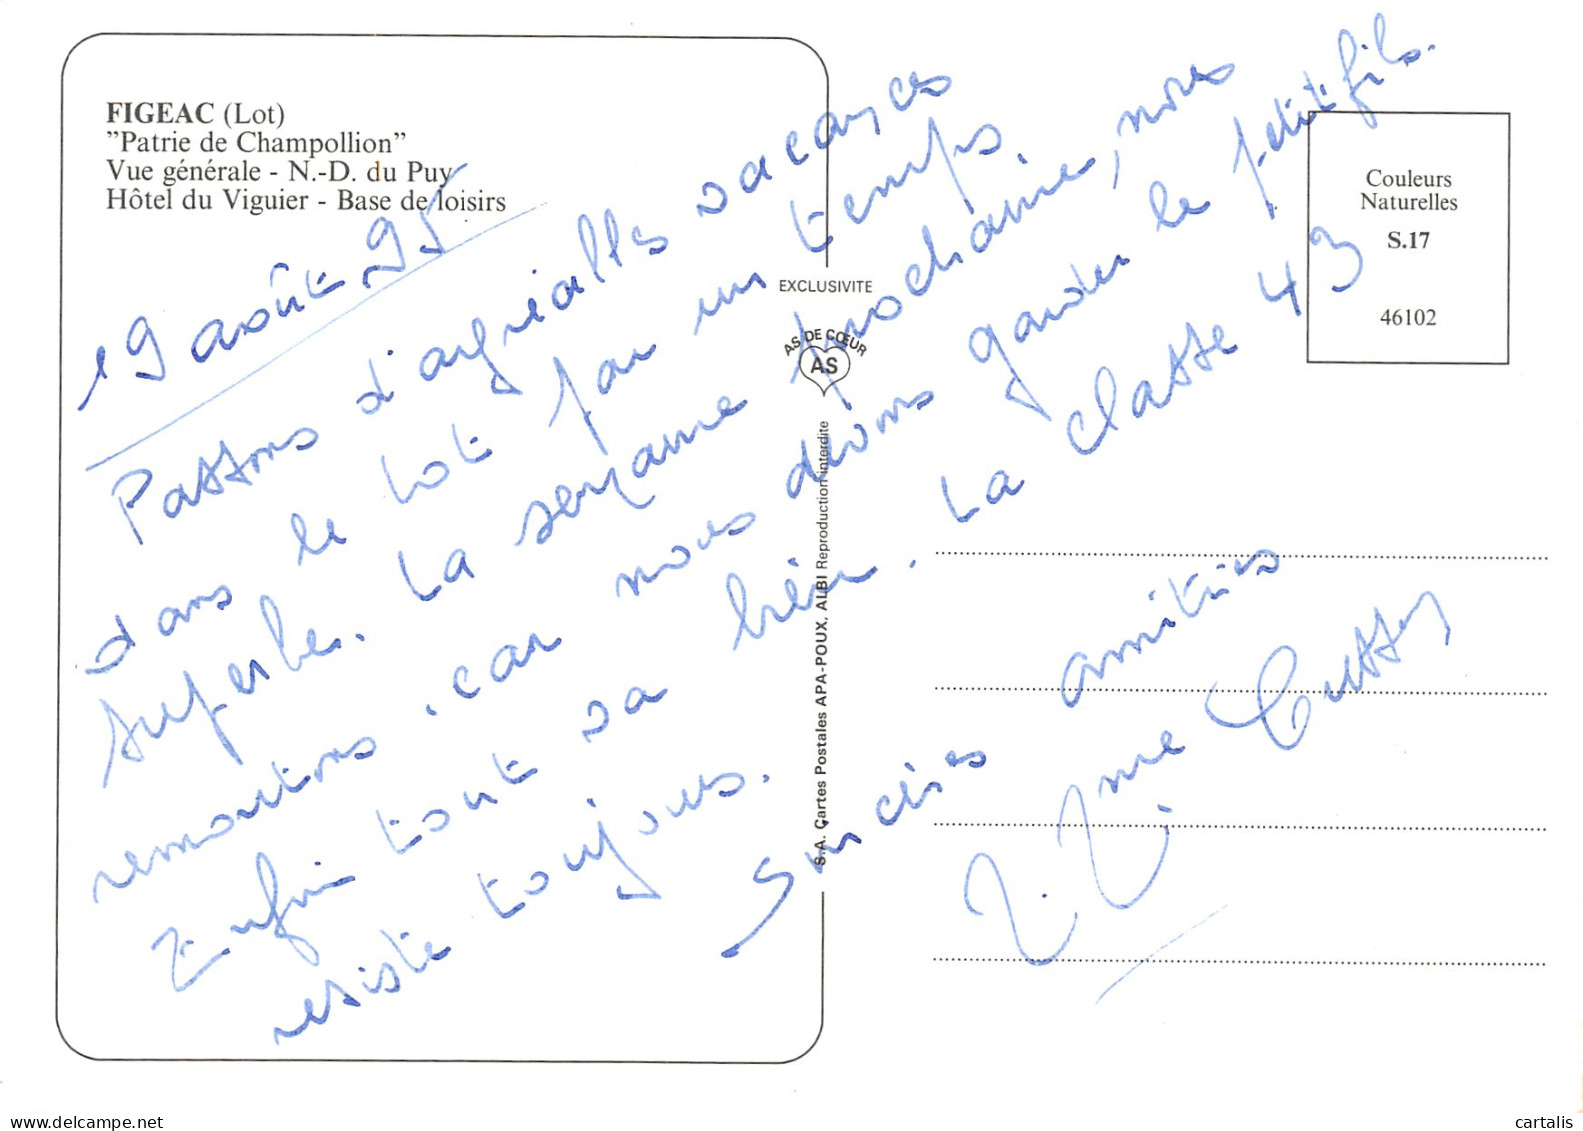 FIGEAC (Lot)
"Patrie de Champollion"
Vue générale - N.-D. du Puy
Hôtel du Viguier - Base de loisirs
19 août 95
Passons d'agréables vacances
dans le Lot par un temps
superbe. La semaine prochaine, nous
remontons, car nous devons garder le petit fils.
Enfin tout va bien. La classe 43
résiste toujours.
Sincères amitiés
Mme
EXCLUSIVITE
AS DE CŒUR
AS
S.A. Cartes Postales APA-POUX, ALBI Reproduction interdite
Couleurs
Naturelles
S.17
46102
www.delcampe.net
cartalis